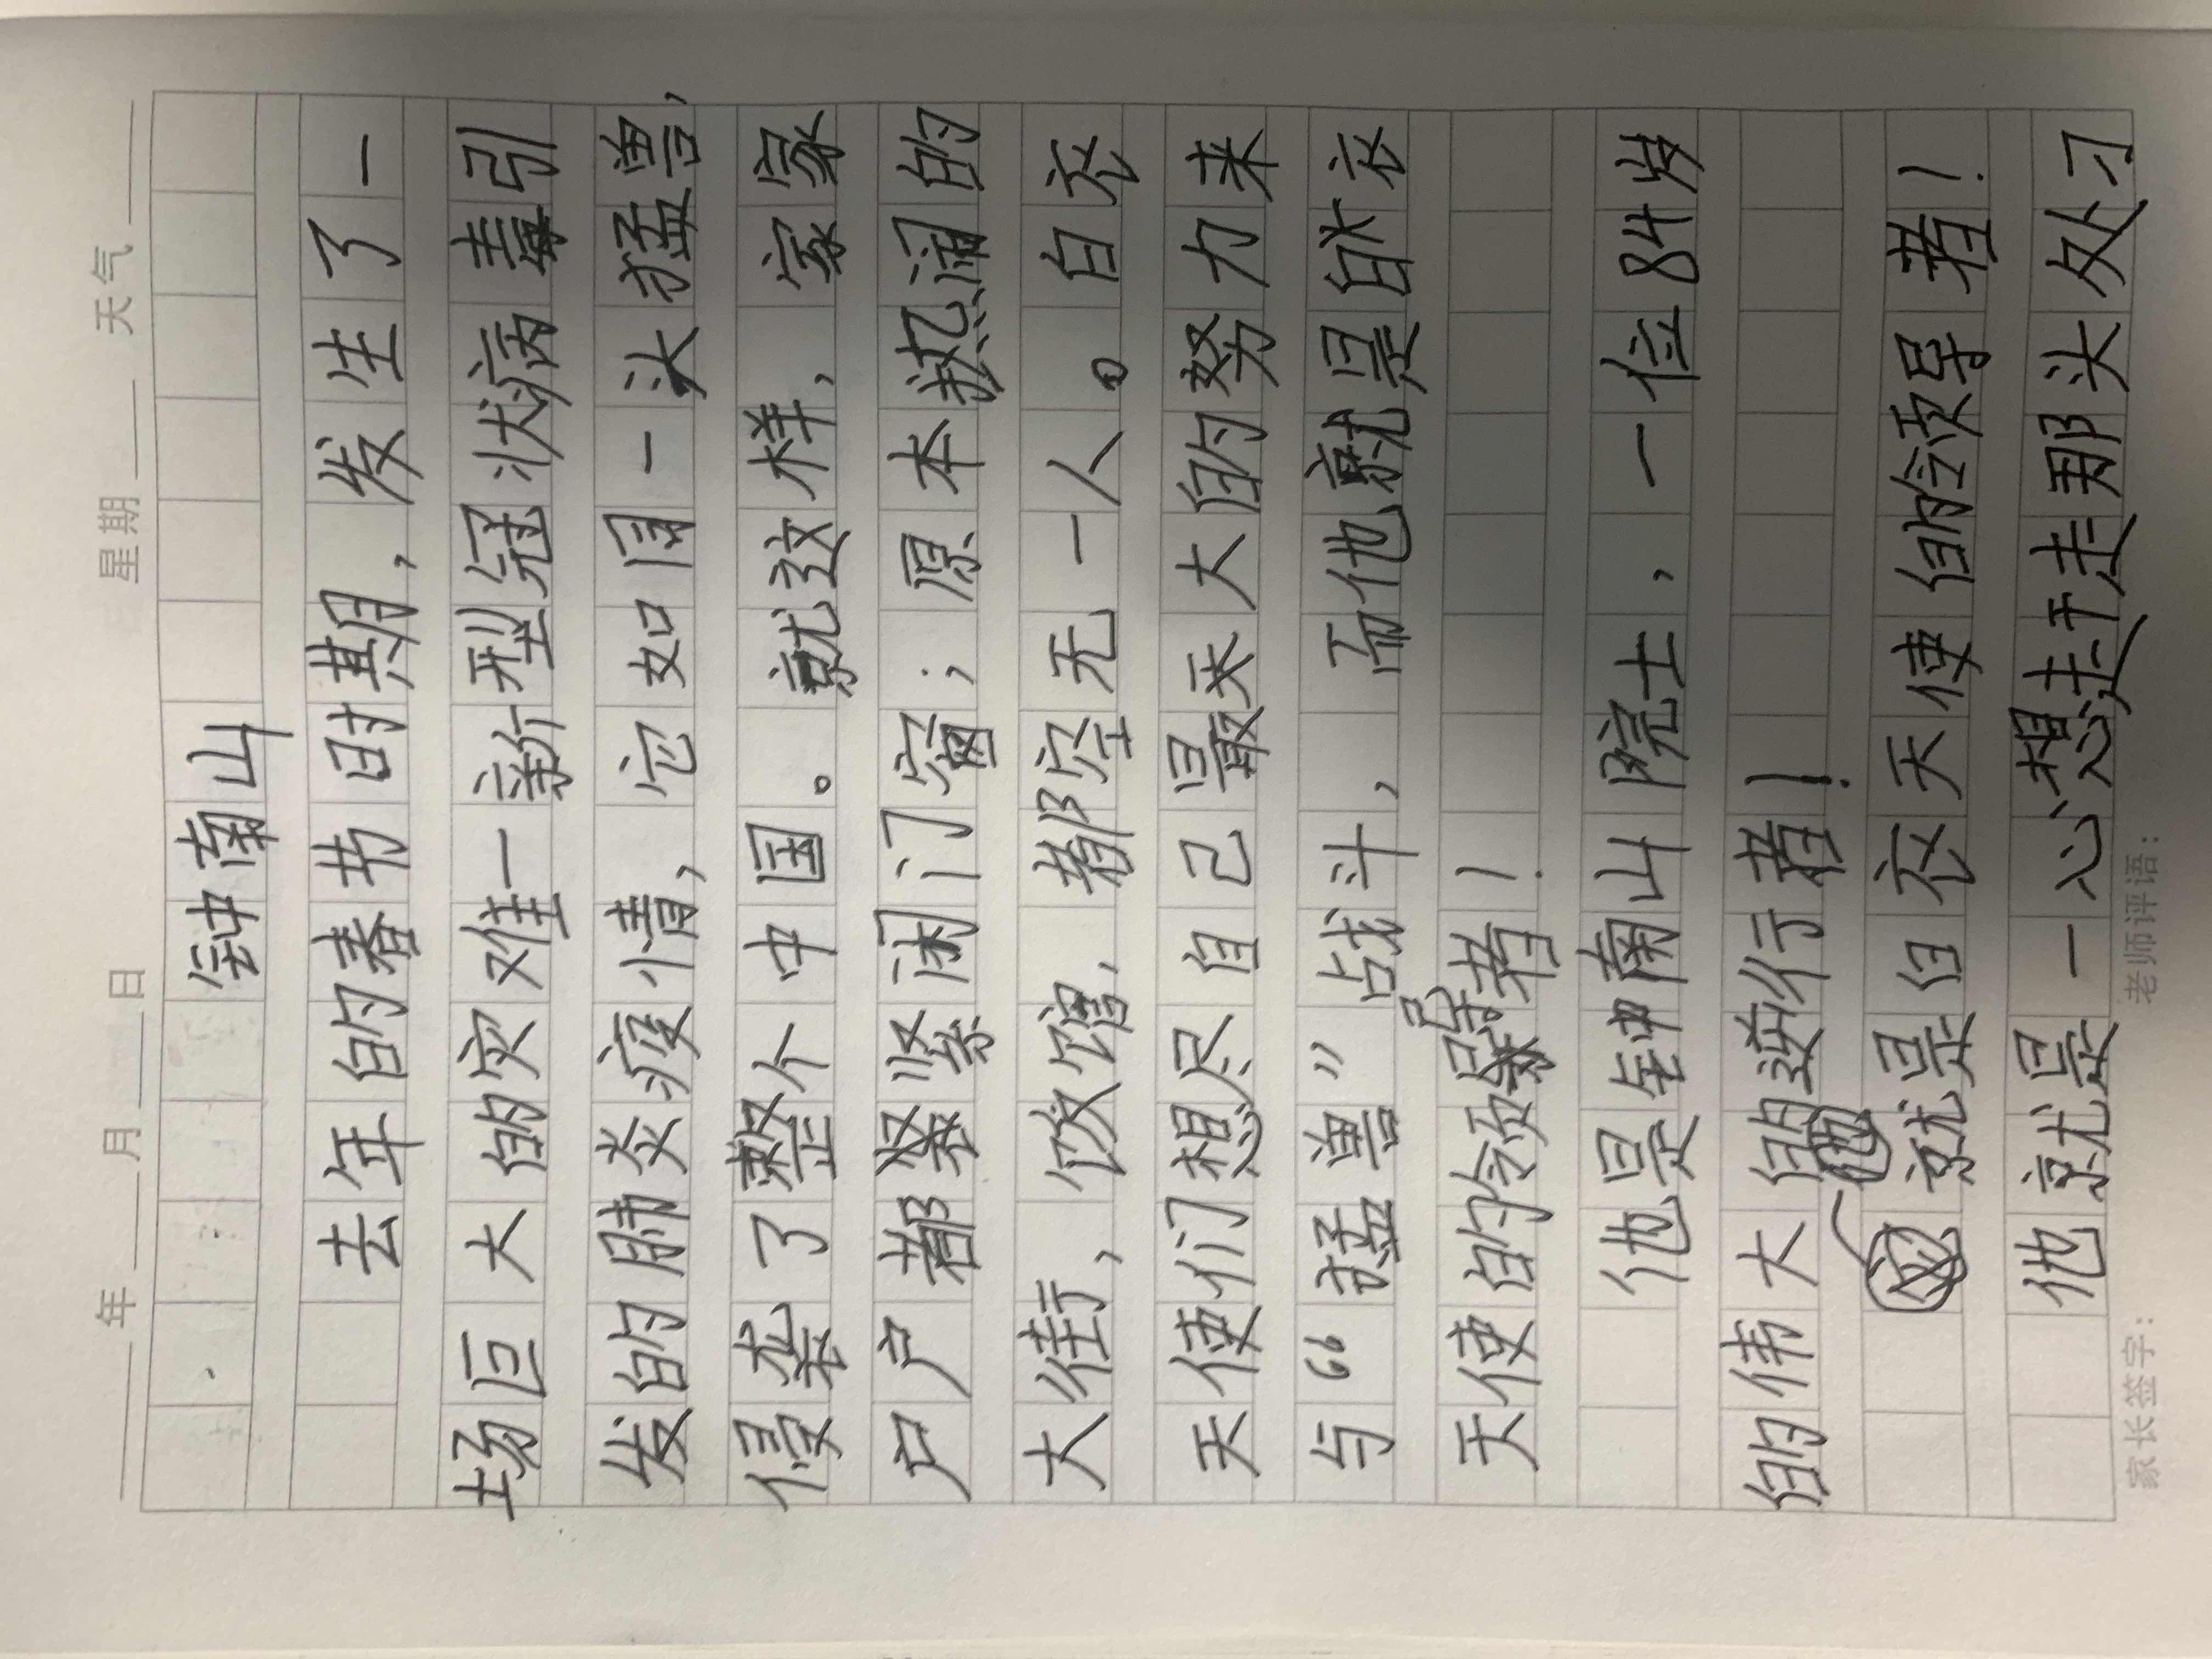 年 月 日 星期 天气
钟南山
去年的春节时期，发生了一
场巨大的灾难一新型冠状病毒引
发的肺炎疫情，它如同一头猛兽，
侵袭了整个中国。就这样，家家
户户都紧紧闭门窗；原本热闹的
大街，饮馆，都空无一人。白衣
天使们想尽自己最大的努力来
与“猛兽”战斗，而他就是白衣
天使的领导者！
他是钟南山院士，一位84岁
的伟大的逆行者！
他就是白衣天使的领导者！
他就是一心想赶走那头处习
家长签字： 老师评语：